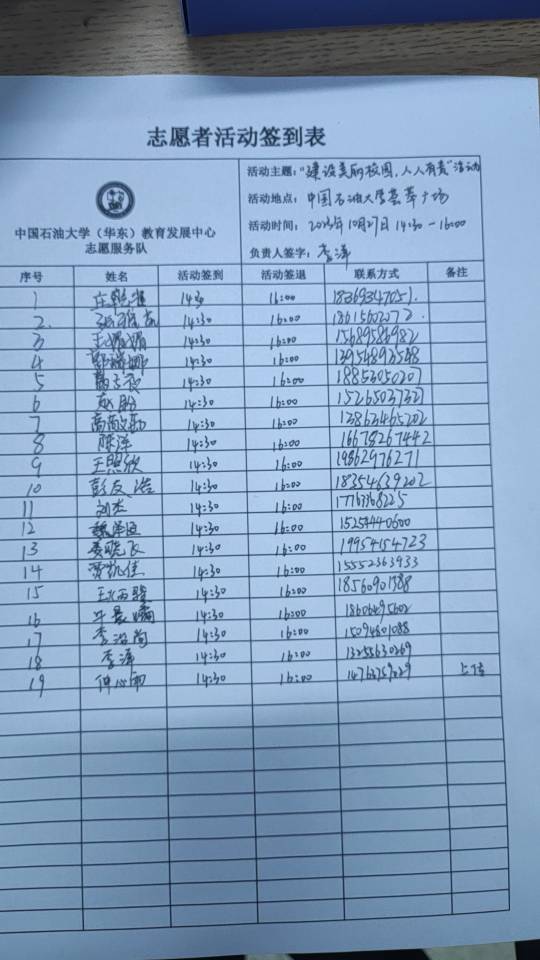 志愿者活动签到表
中国石油大学（华东）教育发展中心
志愿服务队
活动主题："建设美丽校园，人人有责"活动
活动地点：中国石油大学荟萃广场
活动时间：2023年10月27日 14:30-16:00
负责人签字：李泽
序号 姓名 活动签到 活动签退 联系方式 备注
1 14:30 16:00 18369347051.
2. 14:30 16:00 18615602072.
3 14:30 16:00 15689586982
4 14:30 16:00 13956893548
5 14:30 16:00 18853050207
6 赵盼 14:30 16:00 15265037327
7 14:30 16:00 13863465202
8 陈泽 14:30 16:00 16678267442
9 王照欣 14:30 16:00 19862976271
10 彭友浩 14:30 16:00 18354639202
11 刘杰 14:30 16:00 17767368225
12 14:30 16:00 15254440600
13 姜晓飞 14:30 16:00 19954154723
14 贾凯佳 14:30 16:00 15552363933
15 14:30 16:00 18560901388
16 牛晨曦 14:30 16:00 18606495602
17 李浩尚 14:30 16:00 15094801088
18 李泽 14:30 16:00 13255630269
19 仲心雨 14:30 16:00 14763759029